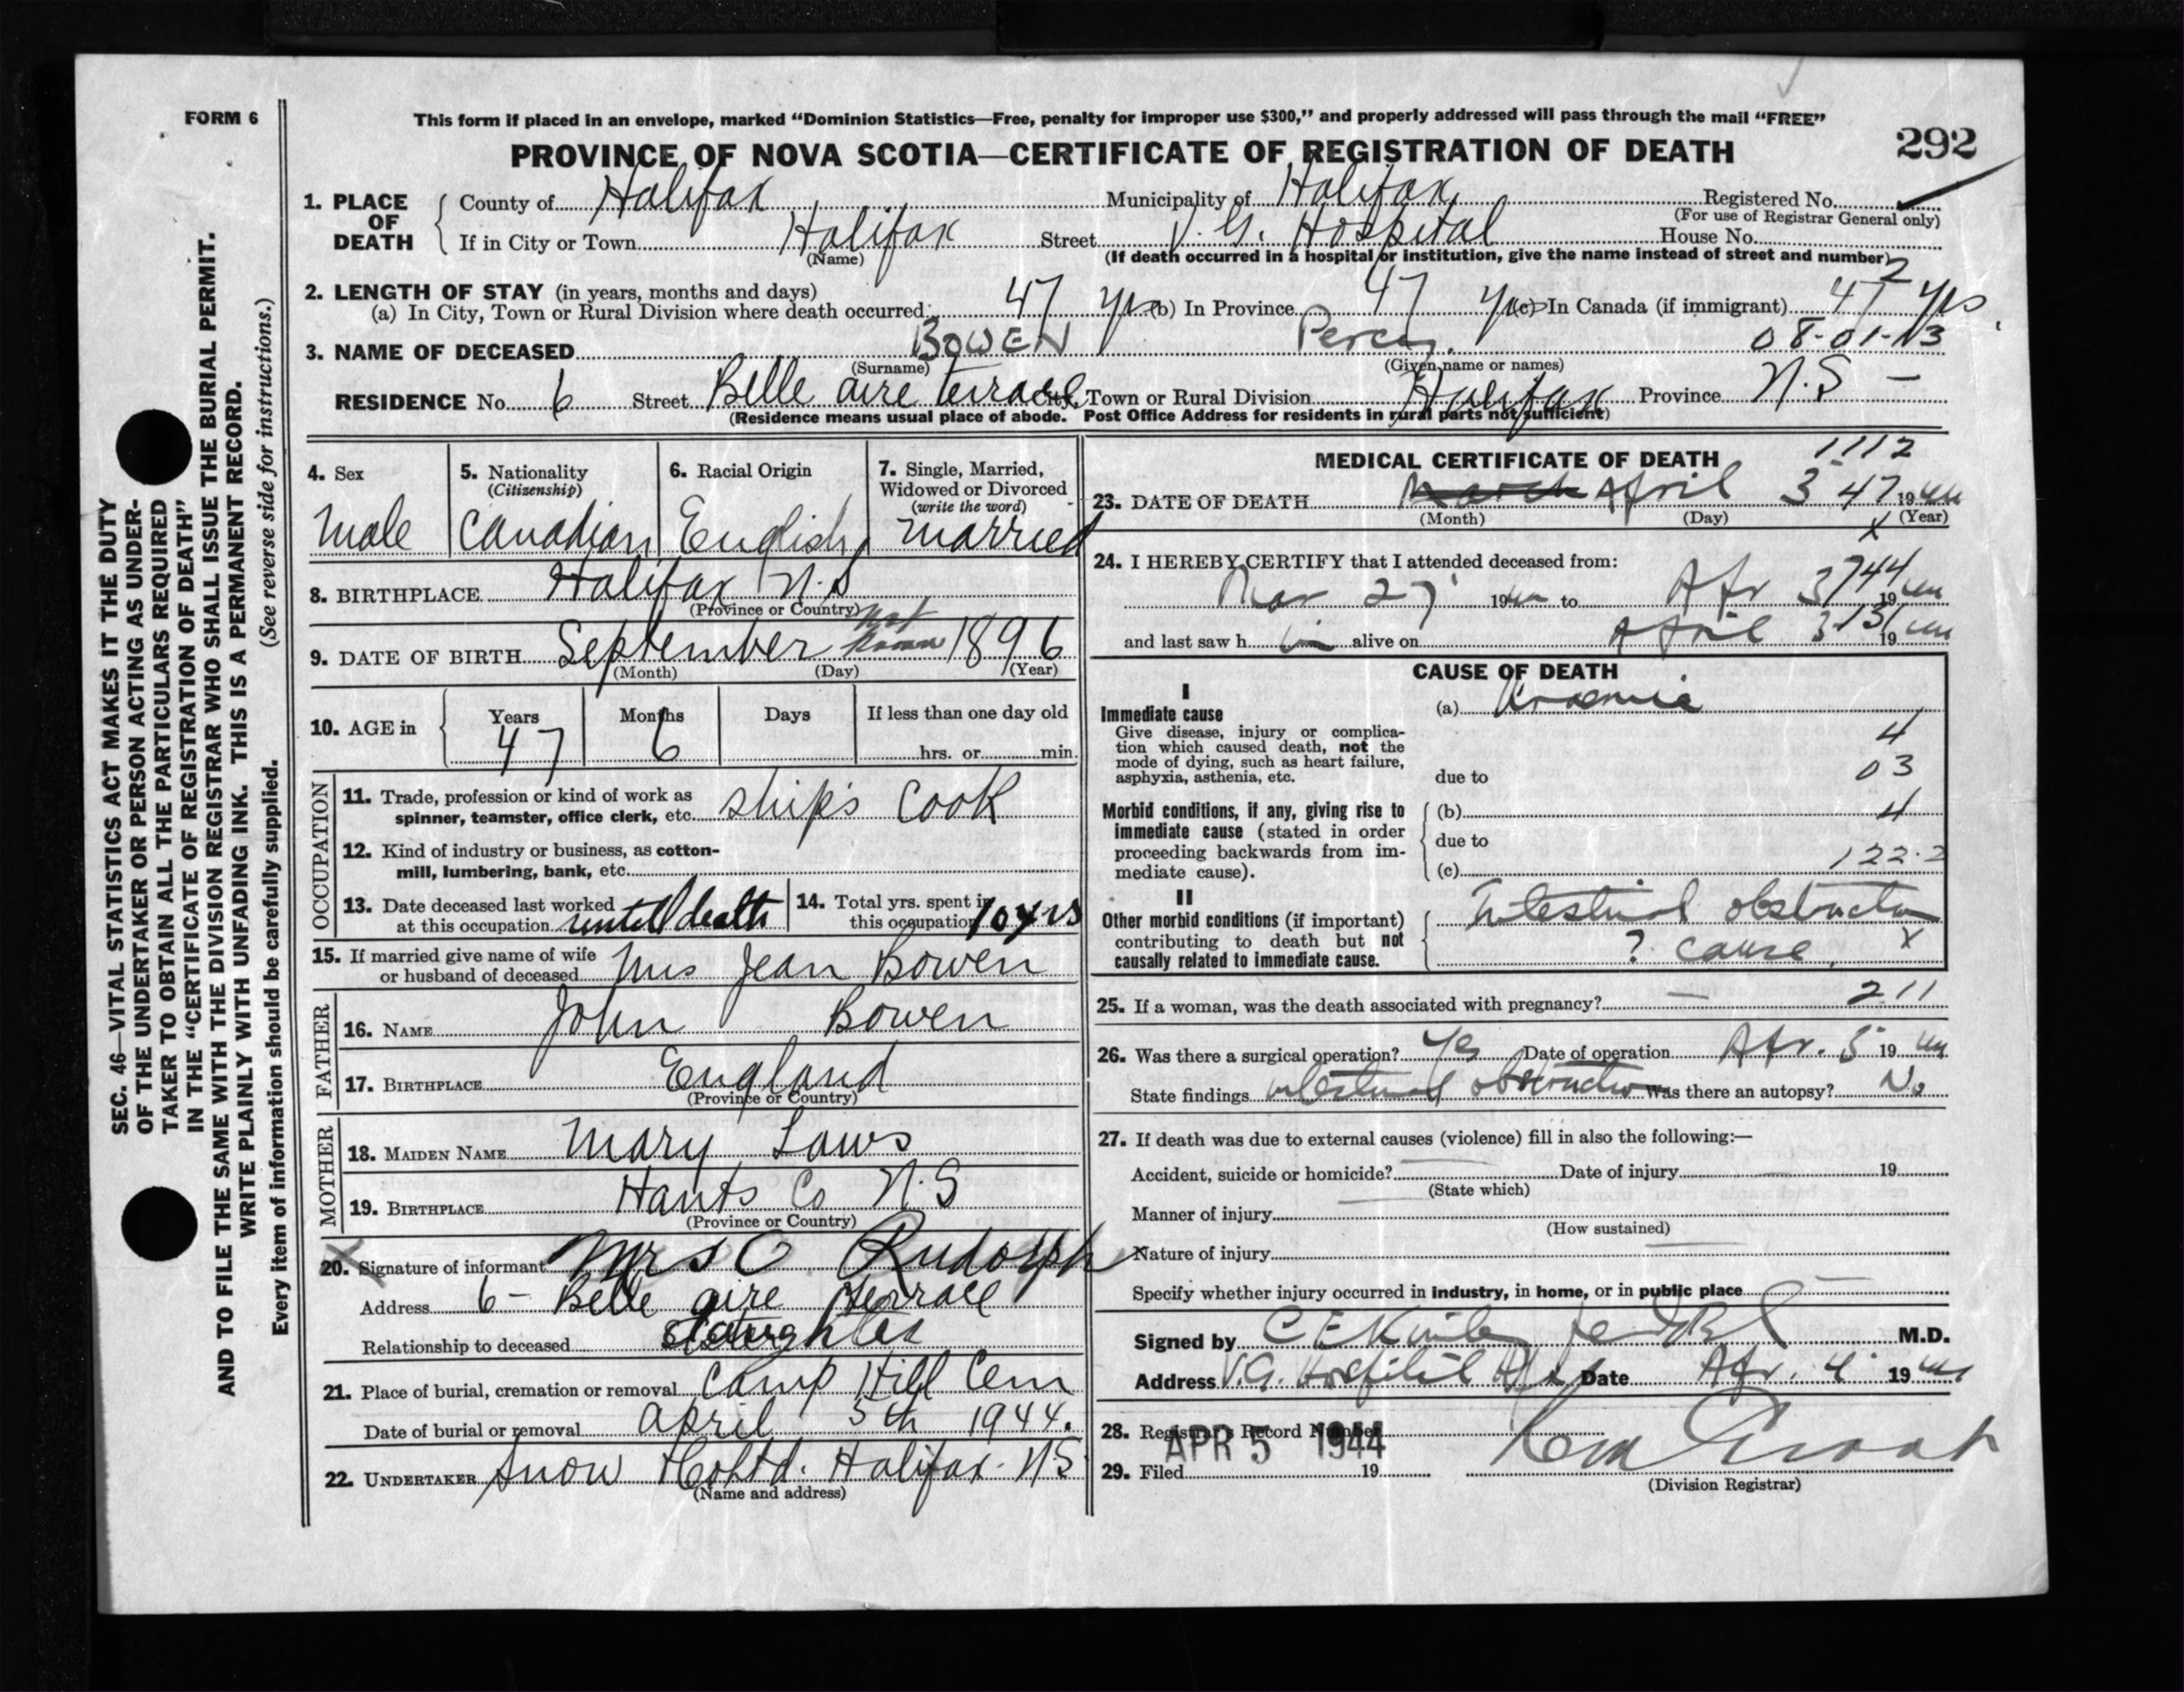 FORM 6
This form if placed in an envelope, marked "Dominion Statistics—Free, penalty for improper use $300," and properly addressed will pass through the mail "FREE"
PROVINCE OF NOVA SCOTIA—CERTIFICATE OF REGISTRATION OF DEATH
292
SEC. 46—VITAL STATISTICS ACT MAKES IT THE DUTY
OF THE UNDERTAKER OR PERSON ACTING AS UNDER-
TAKER TO OBTAIN ALL THE PARTICULARS REQUIRED
IN THE "CERTIFICATE OF REGISTRATION OF DEATH"
AND TO FILE THE SAME WITH THE DIVISION REGISTRAR WHO SHALL ISSUE THE BURIAL PERMIT.
WRITE PLAINLY WITH UNFADING INK. THIS IS A PERMANENT RECORD.
Every item of information should be carefully supplied. (See reverse side for instructions.)
1. PLACE OF DEATH
County of Halifax Municipality of Halifax Registered No.
(For use of Registrar General only)
If in City or Town Halifax Street V. G. Hospital House No.
(Name) (If death occurred in a hospital or institution, give the name instead of street and number)
2
2. LENGTH OF STAY (in years, months and days)
(a) In City, Town or Rural Division where death occurred 47 yrs (b) In Province 47 yrs (c) In Canada (if immigrant) 47 yrs
3. NAME OF DECEASED BOWEN Percy. 08-01-13
(Surname) (Given name or names)
RESIDENCE No. 6 Street Belle aire terrace City, Town or Rural Division Halifax Province N.S —
(Residence means usual place of abode. Post Office Address for residents in rural parts not sufficient)
4. Sex
Male
5. Nationality
(Citizenship)
Canadian
6. Racial Origin
English
7. Single, Married,
Widowed or Divorced
(write the word)
Married
8. BIRTHPLACE Halifax N.S
(Province or Country)
9. DATE OF BIRTH September not known 1896
(Month) (Day) (Year)
10. AGE in
Years Months Days If less than one day old
47 6 hrs. or min.
OCCUPATION
11. Trade, profession or kind of work as
spinner, teamster, office clerk, etc. ship's Cook
12. Kind of industry or business, as cotton-
mill, lumbering, bank, etc.
13. Date deceased last worked
at this occupation until death
14. Total yrs. spent in
this occupation 10 yrs
15. If married give name of wife
or husband of deceased Mrs Jean Bowen
FATHER
16. NAME John Bowen
17. BIRTHPLACE England
(Province or Country)
MOTHER
18. MAIDEN NAME Mary Laws
19. BIRTHPLACE Hants Co N.S
(Province or Country)
20. Signature of informant Mrs C Rudolph
Address 6 - Belle aire terrace
Relationship to deceased daughter
21. Place of burial, cremation or removal Camp Hill Cem
Date of burial or removal April 5th 1944.
22. UNDERTAKER Snow & Co Ltd. Halifax. NS
(Name and address)
MEDICAL CERTIFICATE OF DEATH 1112
23. DATE OF DEATH March April 3 47 19 44
(Month) (Day) (Year)
x
24. I HEREBY CERTIFY that I attended deceased from:
Mar 27 1944 to Apr 3 744 19 44
and last saw h im alive on April 3 131 19 44
CAUSE OF DEATH
I
Immediate cause
Give disease, injury or complica-
tion which caused death, not the
mode of dying, such as heart failure,
asphyxia, asthenia, etc.
(a) Uraemia
4
due to 03
Morbid conditions, if any, giving rise to
immediate cause (stated in order
proceeding backwards from im-
mediate cause).
(b) 4
due to
(c) 122.2
II
Other morbid conditions (if important)
contributing to death but not
causally related to immediate cause.
Intestinal obstruction
? cause. x
25. If a woman, was the death associated with pregnancy? — 211
26. Was there a surgical operation? Yes Date of operation Apr. 3 19 44
State findings intestinal obstruction Was there an autopsy? No
27. If death was due to external causes (violence) fill in also the following:—
Accident, suicide or homicide? Date of injury 19
(State which)
Manner of injury
(How sustained)
Nature of injury
Specify whether injury occurred in industry, in home, or in public place
Signed by C E M.D.
Address V.G. Hospital Date Apr. 4 19 44
28. Registrar's Record Number
APR 5 1944
29. Filed 19
(Division Registrar)